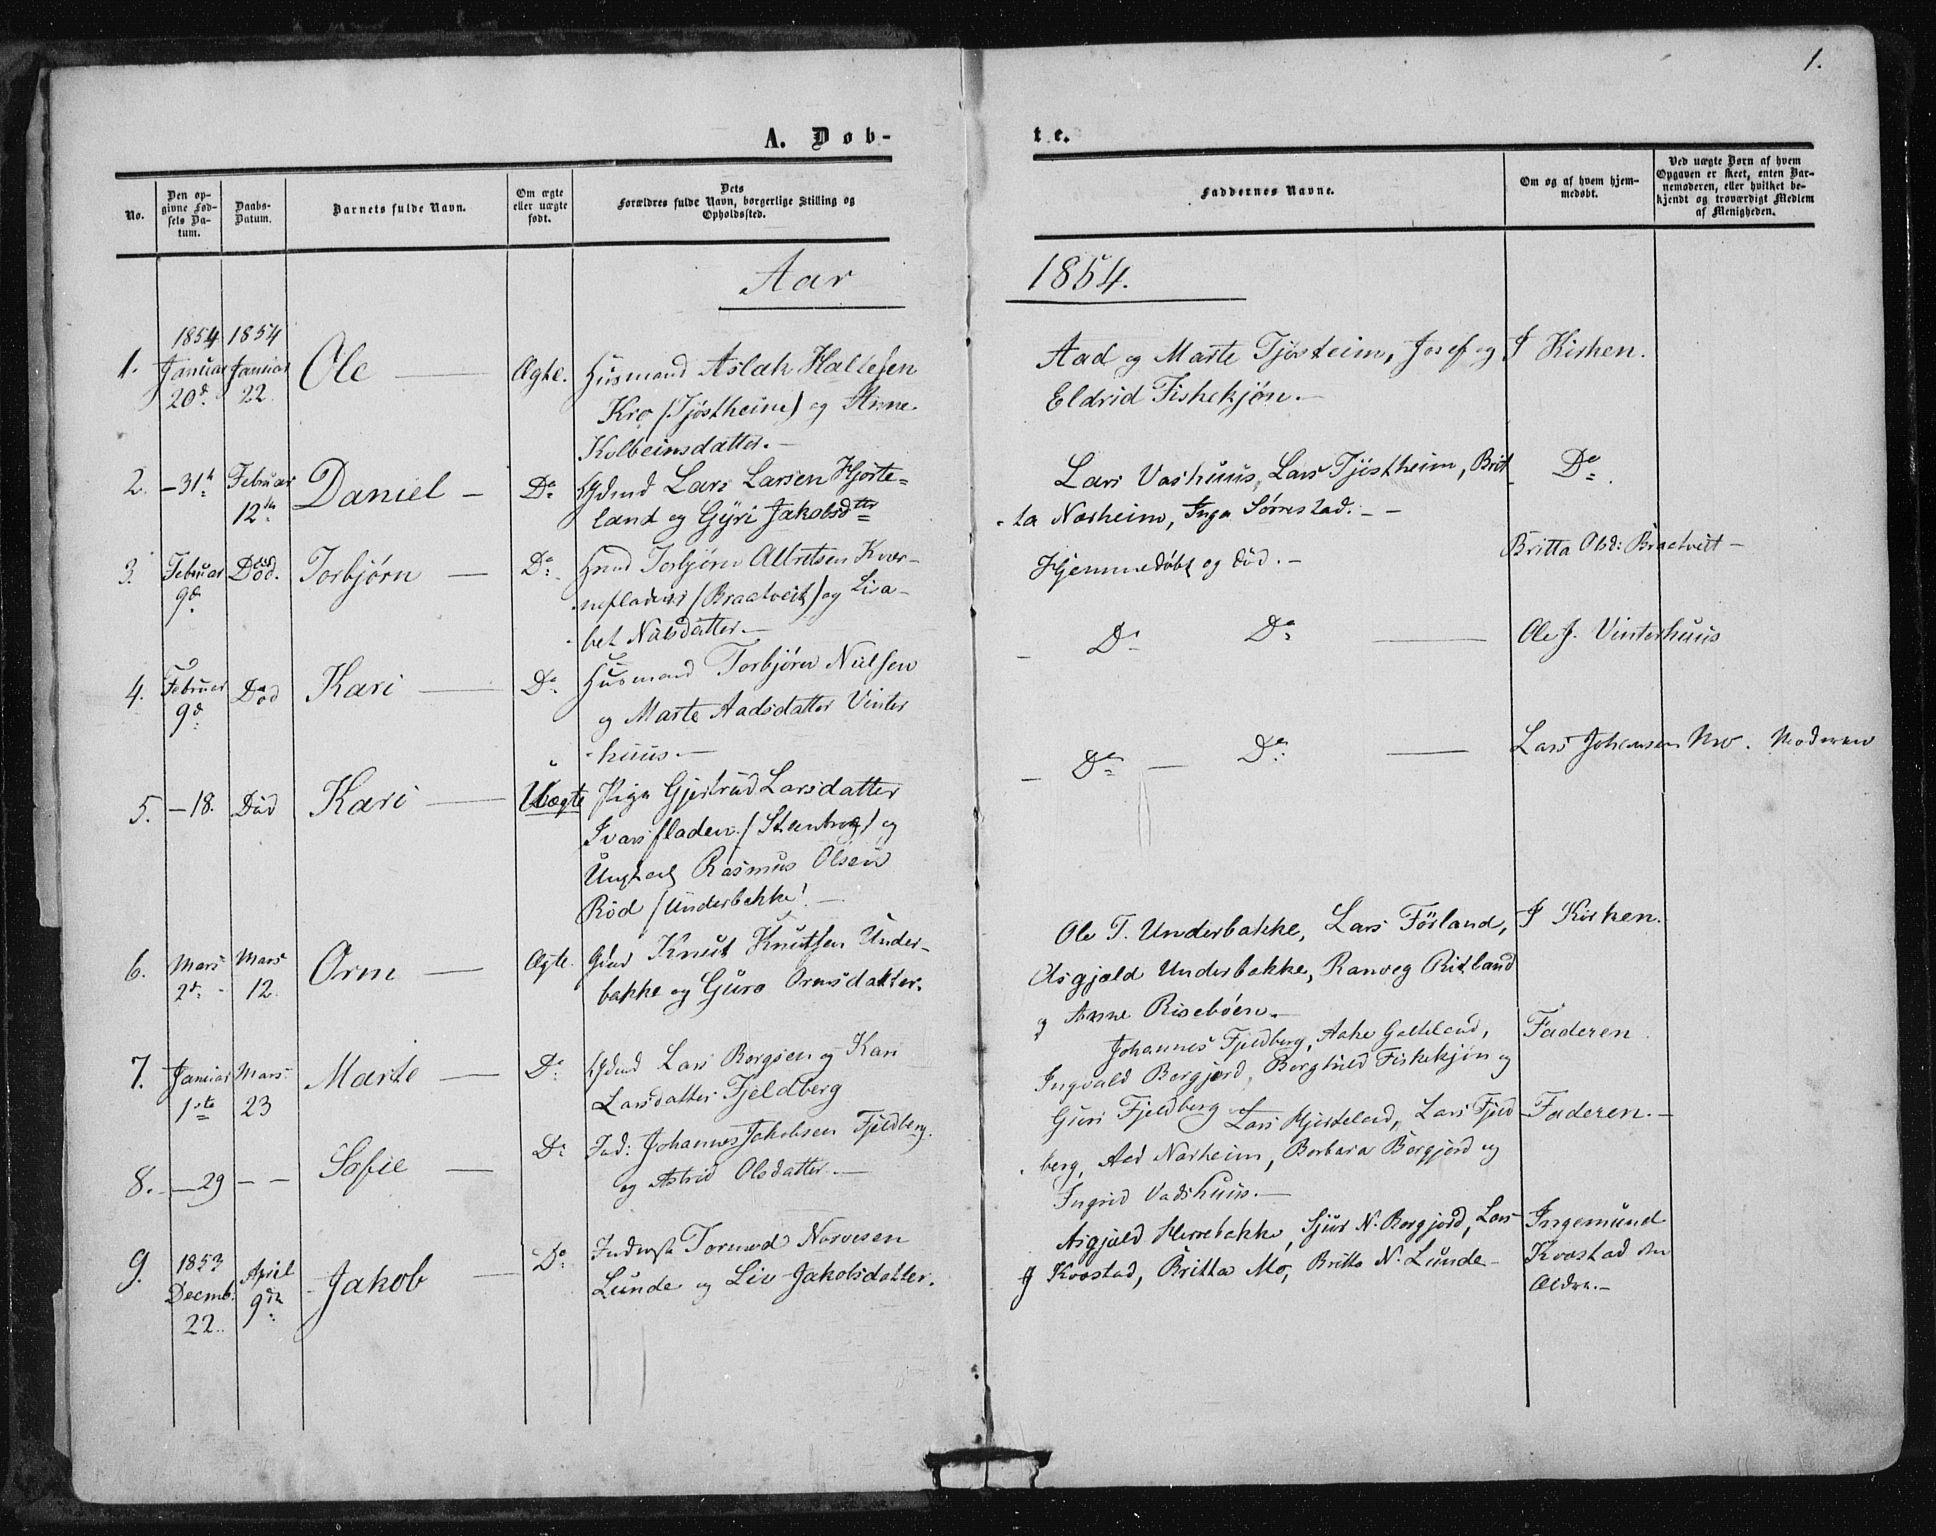 1.
A. Døb-
te.
No.
Den op-
givne Fød-
sels Da-
tum.
Daabs-
Datum.
Barnets fulde Navn.
Om ægte
eller uægte
født.
Dets
Forældres fulde Navn, borgerlige Stilling og
Opholdssted.
Faddernes Navne.
Om og af hvem hjem-
medøbt.
Ved uægte Børn af hvem
Opgaven er skeet, enten Bar-
nemoderen, eller hvilket be-
kjendt og troværdigt Medlem
af Menigheden.
Aar
1854.
1.
1854
Januar
20de
1854
Januar
22.
Ole
Ægte.
Husmand Aslak Hallesen
Kro (Tjøstheim) og Anne
Kolbeinsdatter.
Aad og Marte Tjøstheim, Josef og
Eldrid Fiskekjøn.
I Kirken.
2.
- 31te
Februar
12te
Daniel
Do
Gdmd Lars Larsen Hjorte-
land og Gyri Jakobsdtter
Lars Vashuus, Lars Tjøstheim, Brit
-ta Nærheim, Inga Sørrestad.
Do
3.
Februar
9de
Død.
Torbjørn
Do
Torbjørn
(Braatveit) og Lisa-
bet Nilsdatter.
Hjemmedøbt og død.
Britta Olsd: Braatveit
4.
Februar
9de
Død
Kari
Do
Husmand Torbjørn Nielsen
og Marte Aadsdatter Vinter
-huus.
Do Do
Ole J. Vinterhuus
5.
- 18.
Død
Kari
Uægte
Pige Gjertrud Larsdatter
Ivarsfladen og
Ungkarl Rasmus Olsen
Röd (Underbakke)
Do Do
Lars Johansen Mo.
Moderen
6.
Mars
2de
Mars
12.
Orm
Ægte.
Gmd Knut Knutsen Under-
bakke og Guro Ormsdatter.
Ole T. Underbakke, Lars Førland,
Asgjæld Underbakke, Ranveg Ritland
og Anne Risebøen.
I Kirken.
7.
Januar
1ste
Mars
23
Marte
Do
Gdmd Lars Borgsen og Kari
Larsdatter Fjeldberg
Johannes Fjeldberg, Aake
Ingvald Borgjord, Borghild Fiskekjøn og
Guri Fjeldberg
Faderen
8.
- 29
- -
Sofie
Do
Johannes Jakobsen Fjeldberg
og Astrid Olsdatter.
Lars Hjorteland, Lars Fjeld
berg, Aad Nærheim, Borbara Borgjord og
Ingrid Vadshuus.
Faderen.
9.
1853
Decemb.
22.
April
9de
Jakob
Do
Inderst Tormod Narvesen
Lunde og Liv Jakobsdatter.
Asgjæld Herrebakke, Sjur N. Borgjord, Lars
J Kvæstad, Britta Mo, Britta N. Lunde
Ingemund
Kvæstad den
Ældre.